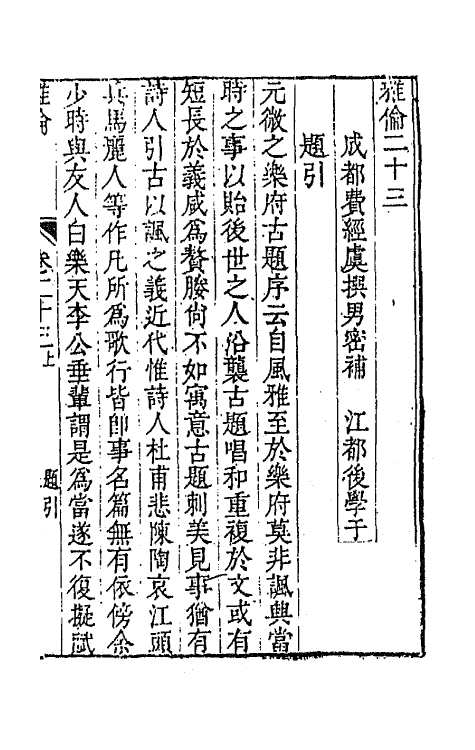 雅倫二十三
成都費經虞撰男密補　江都後學于
題引
元微之樂府古題序云自風雅至於樂府莫非諷興當
時之事以貽後世之人沿襲古題唱和重複於文或有
短長於義咸爲贅賸尙不如寓意古題刺美見事猶有
詩人引古以諷之義近代惟詩人杜甫悲陳陶哀江頭
兵馬麗人等作凡所爲歌行皆卽事名篇無有依傍余
少時與友人白樂天李公垂輩謂是爲當遂不復擬賦
雅倫　卷二十三上　題引